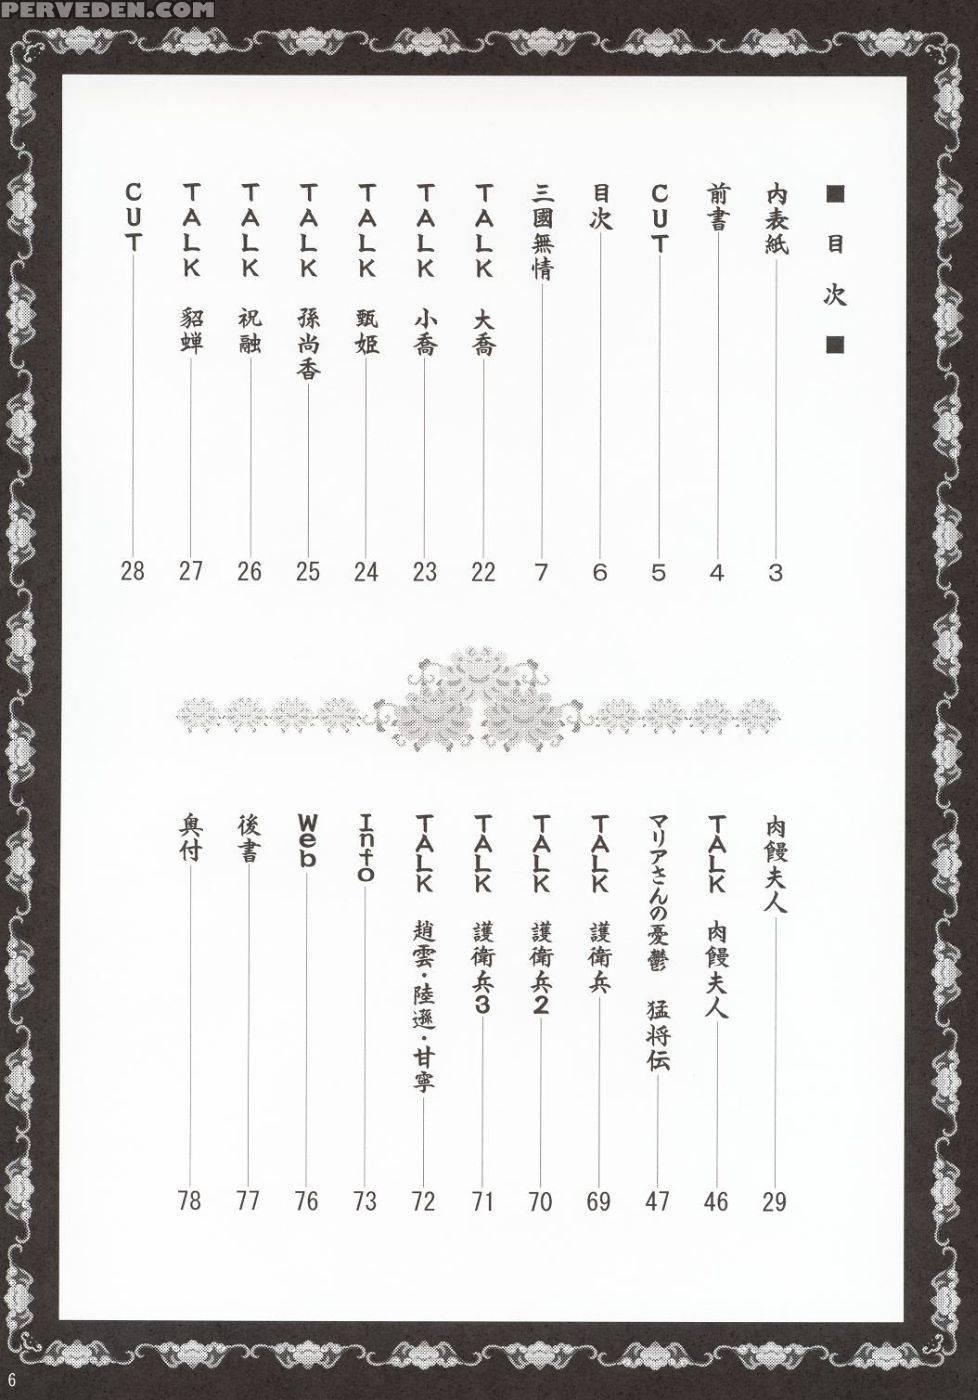 PERVEDEN.COM
■ 目次 ■
内表紙 3
前書 4
CUT 5
目次 6
三國無情 7
TALK 大喬 22
TALK 小喬 23
TALK 甄姫 24
TALK 孫尚香 25
TALK 祝融 26
TALK 貂蝉 27
CUT 28
肉饅夫人 29
TALK 肉饅夫人 46
マリアさんの憂鬱 猛将伝 47
TALK 護衛兵 69
TALK 護衛兵2 70
TALK 護衛兵3 71
TALK 趙雲・陸遜・甘寧 72
Info 73
Web 76
後書 77
奥付 78
6